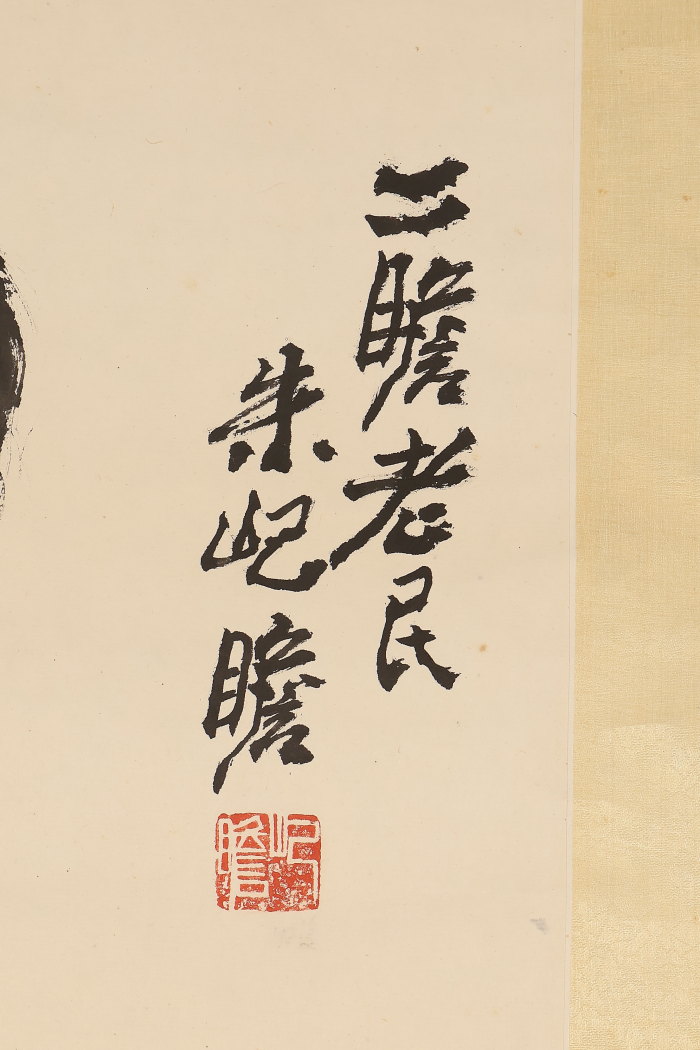 二瞻老民
朱屺瞻
屺瞻